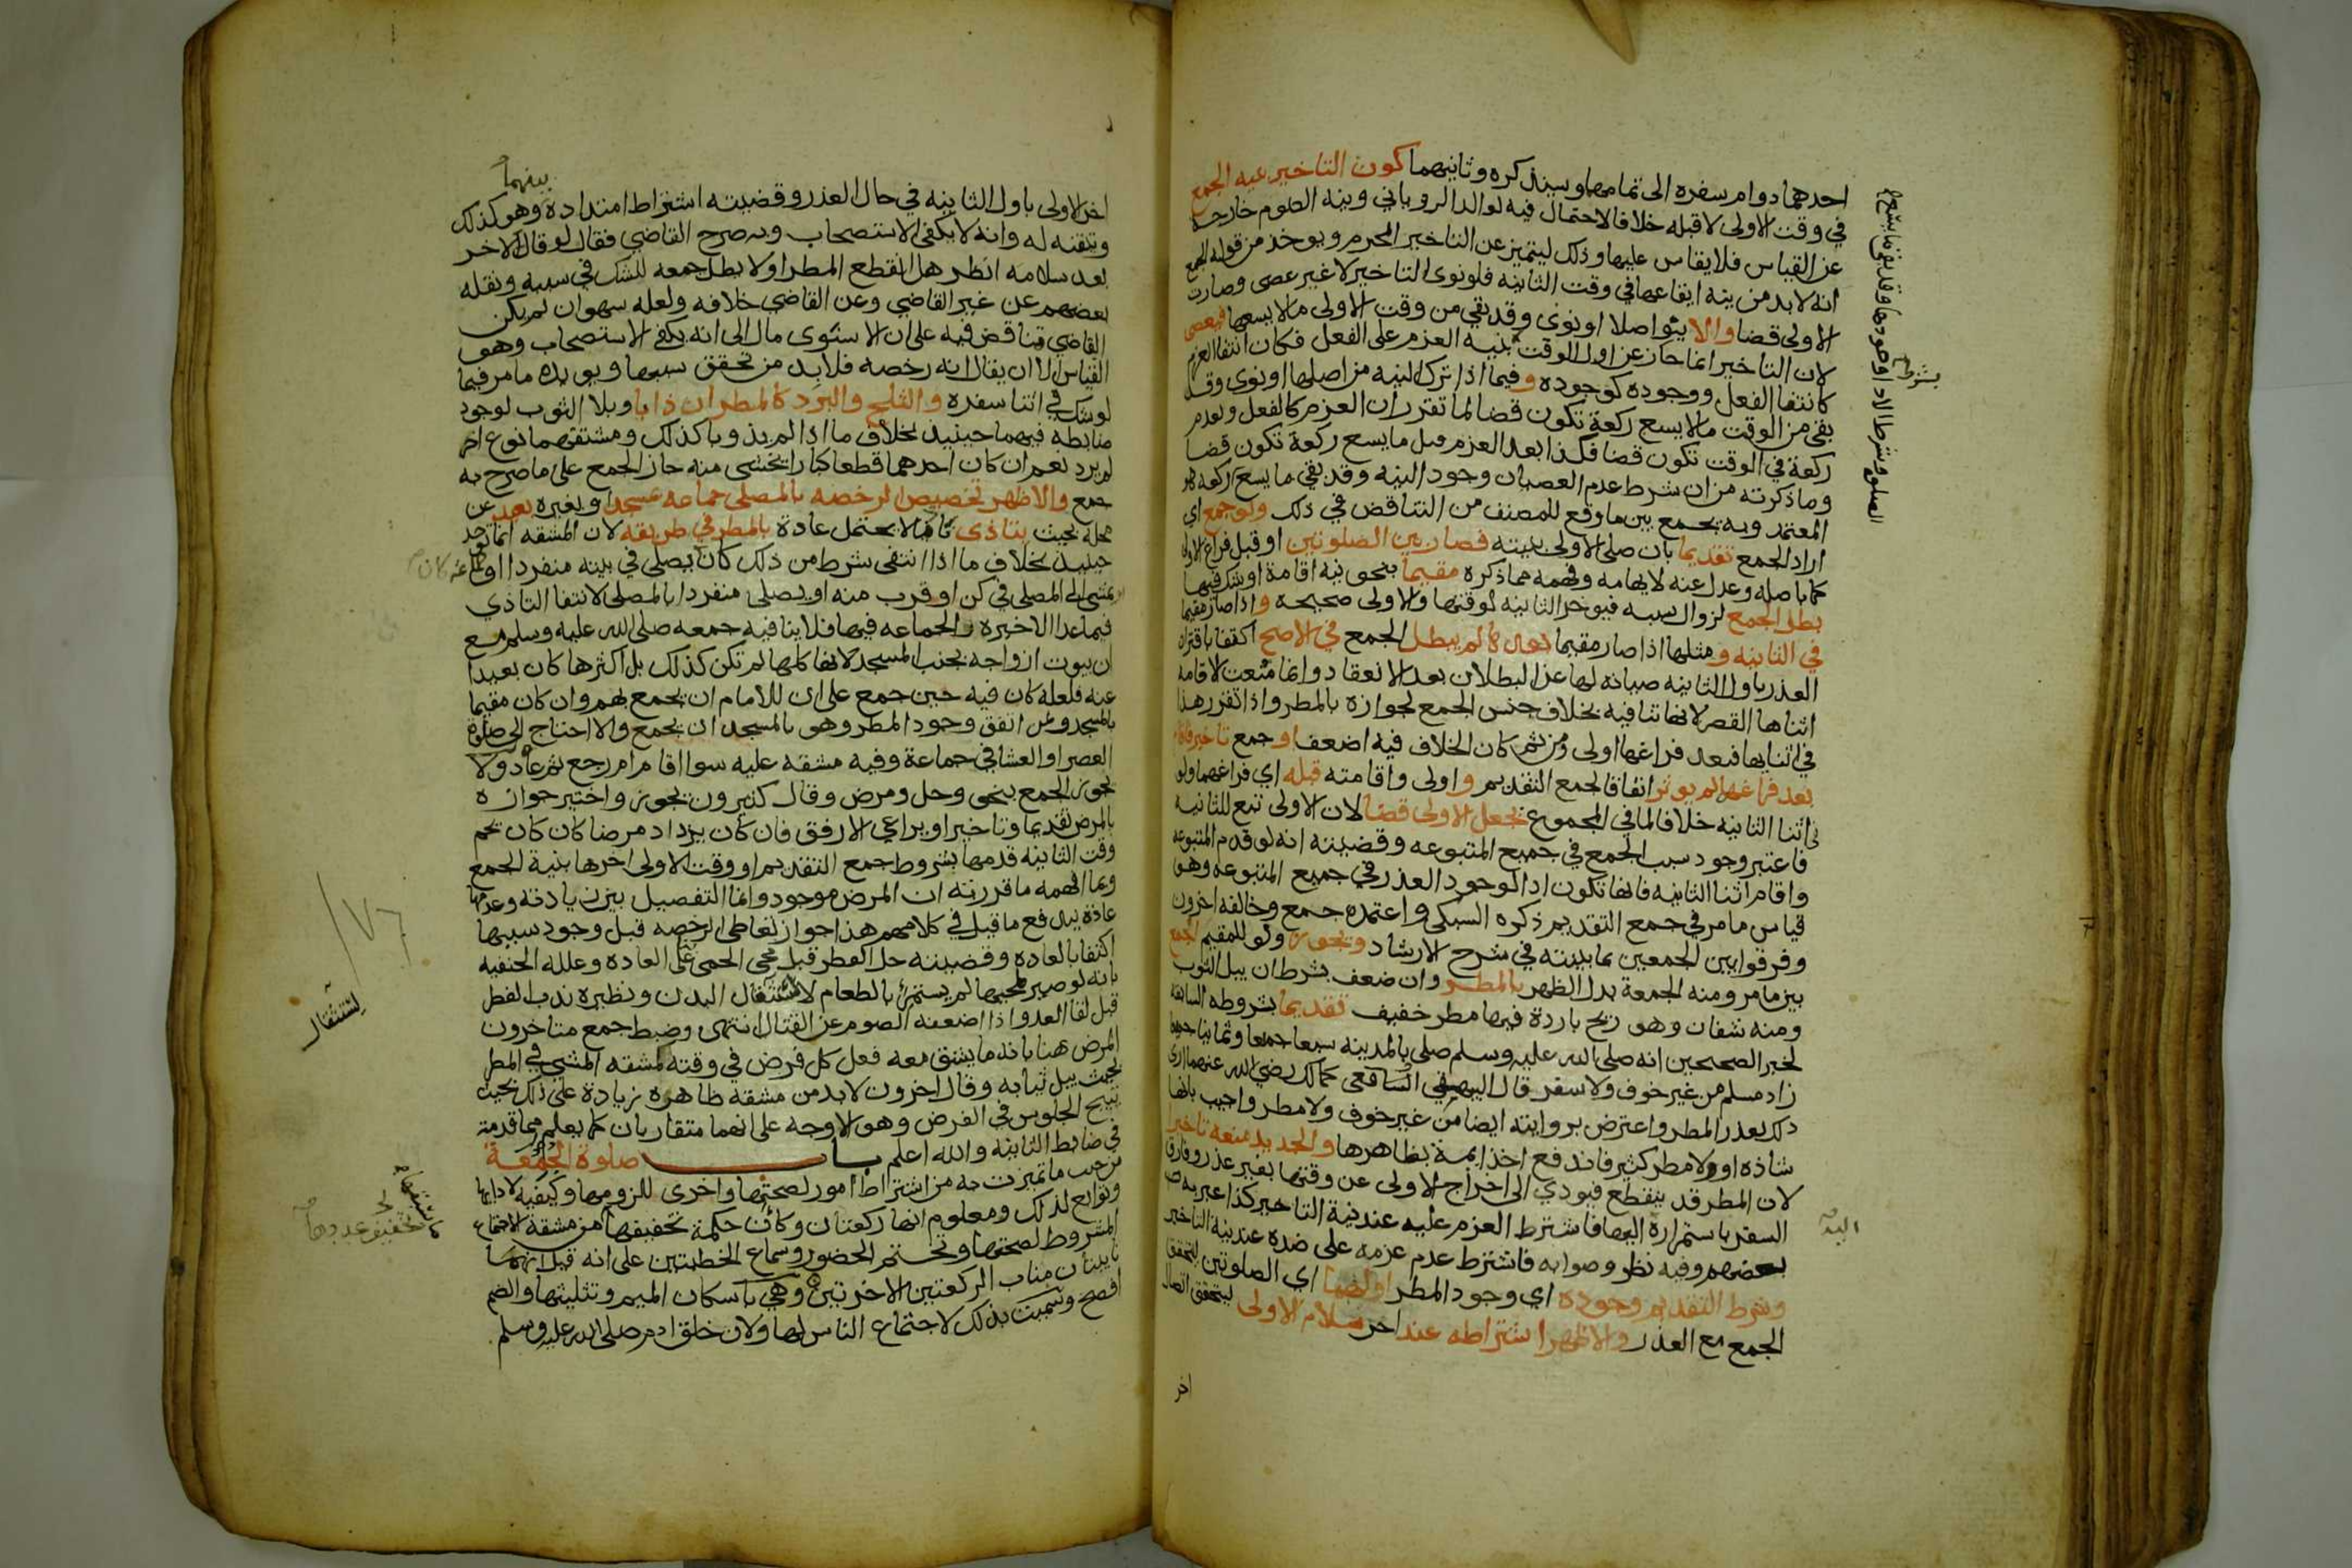 احدهما دوام سفره الى تمامها وسيذكره وثانيهما كون التاخير بنية الجمع
في وقت الاولى لا قبله خلافا لاحتمال فيه لوالد الروياني ونية الصوم خارجة
عن القياس فلا يقاس عليها وذلك ليتميز عن التاخير المحرم ويوخذ من قوله الجمع
انه لا بد من نية ايقاعها في وقت الثانية فلو نوى التاخير لا غير عصى وصارت
الاولى قضا والا ينو اصلا او نوى وقد بقي من وقت الاولى ما لا يسعها فيعصي
لان التاخير انما جاز عن اول الوقت بنية العزم على الفعل فكان انتفا العزم
كانتفا الفعل ووجوده كوجوده وفيما اذا ترك النية من اصلها او نوى وقد
بقي من الوقت ما لا يسع ركعة تكون قضا لما تقرر ان العزم كالفعل وبعدم
ركعة في الوقت تكون قضا فكذا بعد العزم قبل ما يسع ركعة تكون قضا
وما ذكرته من ان شرط عدم العصيان وجود النية وقد بقي ما يسع ركعة هو
المعتمد وبه يجمع بين ما وقع للمصنف من التناقض في ذلك ولو جمع اي
اراد الجمع تقديما بان صلى الاولى بنيته فصار بين الصلوتين او قبل فراغ الاولى
كما باصله وعدل عنه لايهامه وفهمه مما ذكره مقيما بنحو نية اقامة او شك فيها
بطل الجمع لزوال سببه فيوخر الثانية لوقتها والاولى صحيحة واذا صار مقيما
في الثانية ومثلها اذا صار مقيما بعدها لم يبطل الجمع في الاصح اكتفا باقتران
العذر باول الثانية صيانة لها عن البطلان بعد الانعقاد وانما منعت الاقامة
اثناها القصر لانها تنافيه بخلاف جنس الجمع لجوازه بالمطر واذا تقرر هذا
في اثنايها فبعد فراغها اولى ومن ثم كان الخلاف فيه اضعف او جمع تاخيرا فاقام
بعد فراغهما لم يوثر اتفاقا لجمع التقديم واولى واقامته قبله اي فراغهما ولو
في اثنا الثانية خلافا لما في المجموع يجعل الاولى قضا لان الاولى تبع للثانية
فاعتبر وجود سبب الجمع في جميع المتبوعة وقضيته انه لو قدم المتبوعة
واقام اثنا الثانية فانها تكون ادا لوجود العذر في جميع المتبوعة وهو
قياس ما مر في جمع التقديم ذكره السبكي واعتمده جمع وخالفه اخرون
وفرقوا بين الجمعين بما بينته في شرح الارشاد ويجوز ولو للمقيم الجمع
بين ما مر ومنه الجمعة بدل الظهر بالمطر وان ضعف بشرط ان يبل الثوب
ومنه شفان وهو ريح باردة فيها مطر خفيف تقديما بشروطه السابقة
لخبر الصحيحين انه صلى الله عليه وسلم صلى بالمدينة سبعا جميعا وثمانيا جميعا
زاد مسلم من غير خوف ولا سفر قال الشافعي كمالك رضي الله عنهما ارى
ذلك بعذر المطر واعترض بروايته ايضا من غير خوف ولا مطر واجيب بانها
شاذة او ولا مطر كثير فاندفع اخذ ايمة بظاهرها والجديد منعه تاخيرا
لان المطر قد ينقطع فيودي الى اخراج الاولى عن وقتها بغير عذر وفارق
السفر باستمراره اليها فاشترط العزم عليه عند نية التاخير كذا عبر به
بعضهم وفيه نظر وصوابه فاشترط عدم عزمه على ضده عند نية التاخير
وشرط التقديم وجوده اي وجود المطر اولهما اي الصلوتين ليتحقق
الجمع مع العذر والاظهر اشتراطه عند اخر سلام الاولى ليتحقق اتصال
اخر
بشرطها
البقا
بينهما
اخر الاولى باول الثانية في حال العذر وقضيته اشتراط امتداده وهو كذلك
وتيقنه له وانه لا يكفي الاستصحاب وبه صرح القاضي فقال لو قال لاخر
بعد سلامه انظر هل انقطع المطر اولا بطل جمعه للشك في سببه ونقله
بعضهم عن غير القاضي وعن القاضي خلافه ولعله سهو ان لم يكن
القاضي تناقض فيه على ان الاسنوي مال الى انه يكفي الاستصحاب وهو
القياس الا ان يقال انه رخصة فلا بد من تحقق سببها ويويده ما مر فيما
لو شك في اثنا سفره والثلج والبرد كالمطر ان ذابا وبلا الثوب لوجود
ضابطه فيهما حينيذ بخلاف ما اذا لم يذوبا كذلك ومشقتهما نوع اخر
لم يرد نعم ان كان احدهما قطعا كبارا يخشى منه جاز الجمع على ما صرح به
جمع والاظهر تخصيص الرخصة بالمصلي جماعة بمسجد او بغيره بعيد عن
محله بحيث يتاذى تاذيا لا يحتمل عادة بالمطر في طريقه لان المشقة انما توجد
حينيذ بخلاف ما اذا انتفى شرط من ذلك كان يصلي في بيته منفردا او
يمشي الى المصلى في كن او قرب منه او يصلي منفردا بالمصلى لانتفا التاذي
فيما عدا الاخيرة والجماعة فيها فلا ينافيه جمعه صلى الله عليه وسلم مع
ان بيوت ازواجه بجنب المسجد لانها كلها لم تكن كذلك بل اكثرها كان بعيدا
عنه فلعله كان فيه حين جمع على ان للامام ان يجمع بهم وان كان مقيما
بالمسجد ولمن اتفق وجود المطر وهو بالمسجد ان يجمع والا احتاج الى صلوة
العصر او العشا في جماعة وفيه مشقة عليه سوا اقام ام رجع ثم عاد ولا
يجوز الجمع بنحو وحل ومرض وقال كثيرون يجوز واختير جوازه
بالمرض تقديما وتاخيرا ويراعي الارفق فان كان يزداد مرضا كان كان يحم
وقت الثانية قدمها بشروط جمع التقديم او وقت الاولى اخرها بنية الجمع
وبما افهمه ما قررته ان المرض موجود وانما التفصيل بين زيادته وعدمها
عادة يندفع ما قيل في كلامهم هذا جواز تعاطي الرخصة قبل وجود سببها
اكتفا بالعادة وقضيته حل الفطر قبل مجي الحمى على العادة وعلله الحنفية
بانه لو صبر لمجيها لم يستمرئ بالطعام لاشتغال البدن ونظيره ندب الفطر
قبل لقا العدو اذا اضعفه الصوم عن القتال انتهى وضبط جمع متاخرون
المرض هنا بانه ما يشق معه فعل كل فرض في وقته لمشقة المشي في المطر
بحيث يبل ثيابه وقال اخرون لا بد من مشقة ظاهرة زيادة على ذلك بحيث
تبيح الجلوس في الفرض وهو الاوجه على انهما متقاربان كما يعلم مما قدمته
في ضابط الثانية والله اعلم باب صلوة الجمعة
من حيث ما تميزت به من اشتراط امور لصحتها واخرى للزومها وكيفية لادايها
وتوابع لذلك ومعلوم انها ركعتان وكأن حكمة تخفيفها من مشقة الاجتماع
المشروط لصحتها وتحتم الحضور وسماع الخطبتين على انه قيل انهما
نايبتان مناب الركعتين الاخرتين وهي باسكان الميم وتثليثها والضم
افصح وسميت بذلك لاجتماع الناس لها ولان خلق ادم صلى الله عليه وسلم
١٧٦
لاشتغال
تخفيف عددها